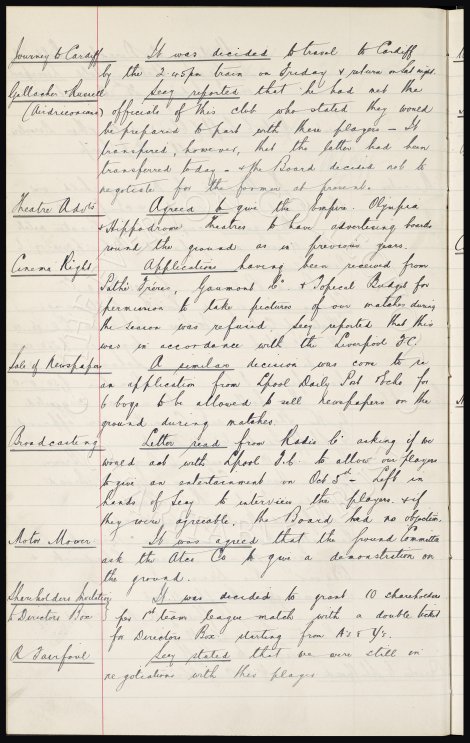 Journey to Cardiff It was decided to travel to Cardiff
by the 2.45pm train on Friday & return on Sat night.
Gallacher & Russell Secy reported that he had met the
(Airdrieonians) officials of this club who stated they would
be prepared to part with these players – It
transpired, however, that the latter had been
transferred today – & the Board decided not to
negotiate for the former at present.
Theatre Advts Agreed to give the Empire, Olympia
& Hippodrome Theatres to have advertising boards
round the ground as in previous years.
Cinema Rights Applications having been received from
Pathe Freres, Gaumont Co & Topical Budget for
permission to take pictures of our matches during
the season was refused. Secy reported that this
was in accordance with the Liverpool F.C.
Sale of Newspapers A similar decision was come to re
an application from Lpool Daily Post & Echo for
6 boys to be allowed to sell newspapers on the
ground during matches.
Broadcasting Letter read from Radio Co asking if we
would act with Lpool F.C. to allow our players
to give an entertainment on Oct 3rd – Left in
hands of Secy to interview the players & if
they were agreeable, the Board had no objection.
Motor Mower It was agreed that the ground Committee
ask the Atco Co to give a demonstration on
the ground.
Shareholders Invitation It was decided to grant 10 shareholders
to Directors Box per 1st team league match with a double ticket
for Directors Box starting from
R Fairfoul Secy stated that we were still in
negotiations with this player